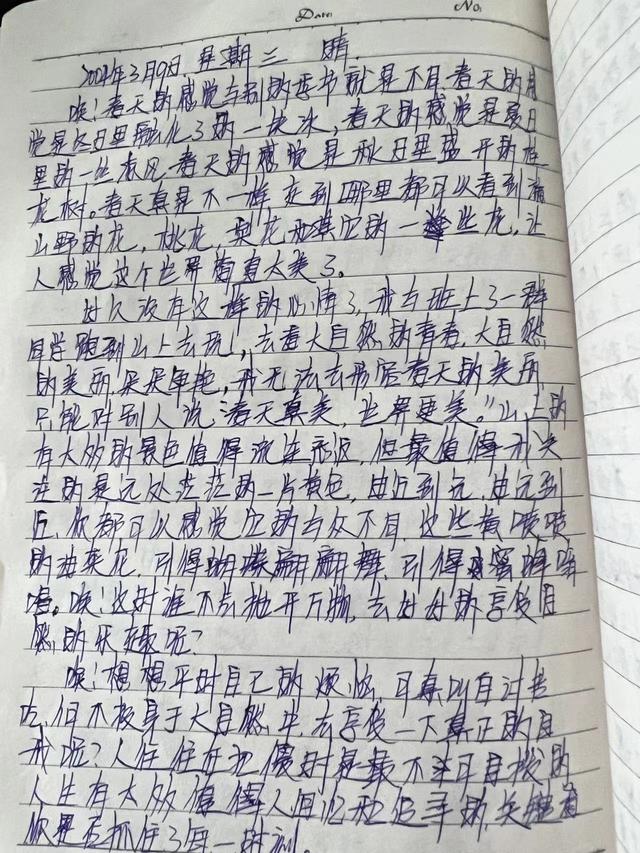 Date:
No.
2004年3月9日 星期二 晴
唉！春天的感觉与别的季节就是不同，春天的感
觉是冬日里融化了的一块冰，春天的感觉是夏日
里的一丝凉风，春天的感觉是秋日里盛开的桂
花树。春天真是不一样，走到哪里都可以看到满
山野的花，桃花，梨花和其它的一些花，让
人感觉这个世界简直太美了。
好久没有这样的心情了，我与班上了一群
同学跑到山上去玩，去看大自然的青春，大自然
的美丽，朵朵争艳，我无法去形容春天的美丽，
只能对别人说：“春天真美，世界更美。”山上的
有太多的景色值得流连忘返，但最值得我关
注的是远处茫茫的一片黄色，由近到远，由远到
近，你都可以感觉它的与众不同，这些黄喷喷
的油菜花，引得蝴蝶翩翩舞，引得蜜蜂嗡
嗡。唉！这时谁不去抛开万物，去好好的享受自
然的乐趣呢？
唉！想想平时自己的烦恼，可真叫自讨苦
吃，何不投身于大自然中，去享受一下真正的自
我呢？人往往在犯傻时是最不可自拔的
人生有太多值得人回忆和追寻的，关键看
你是否抓住了每一时刻。